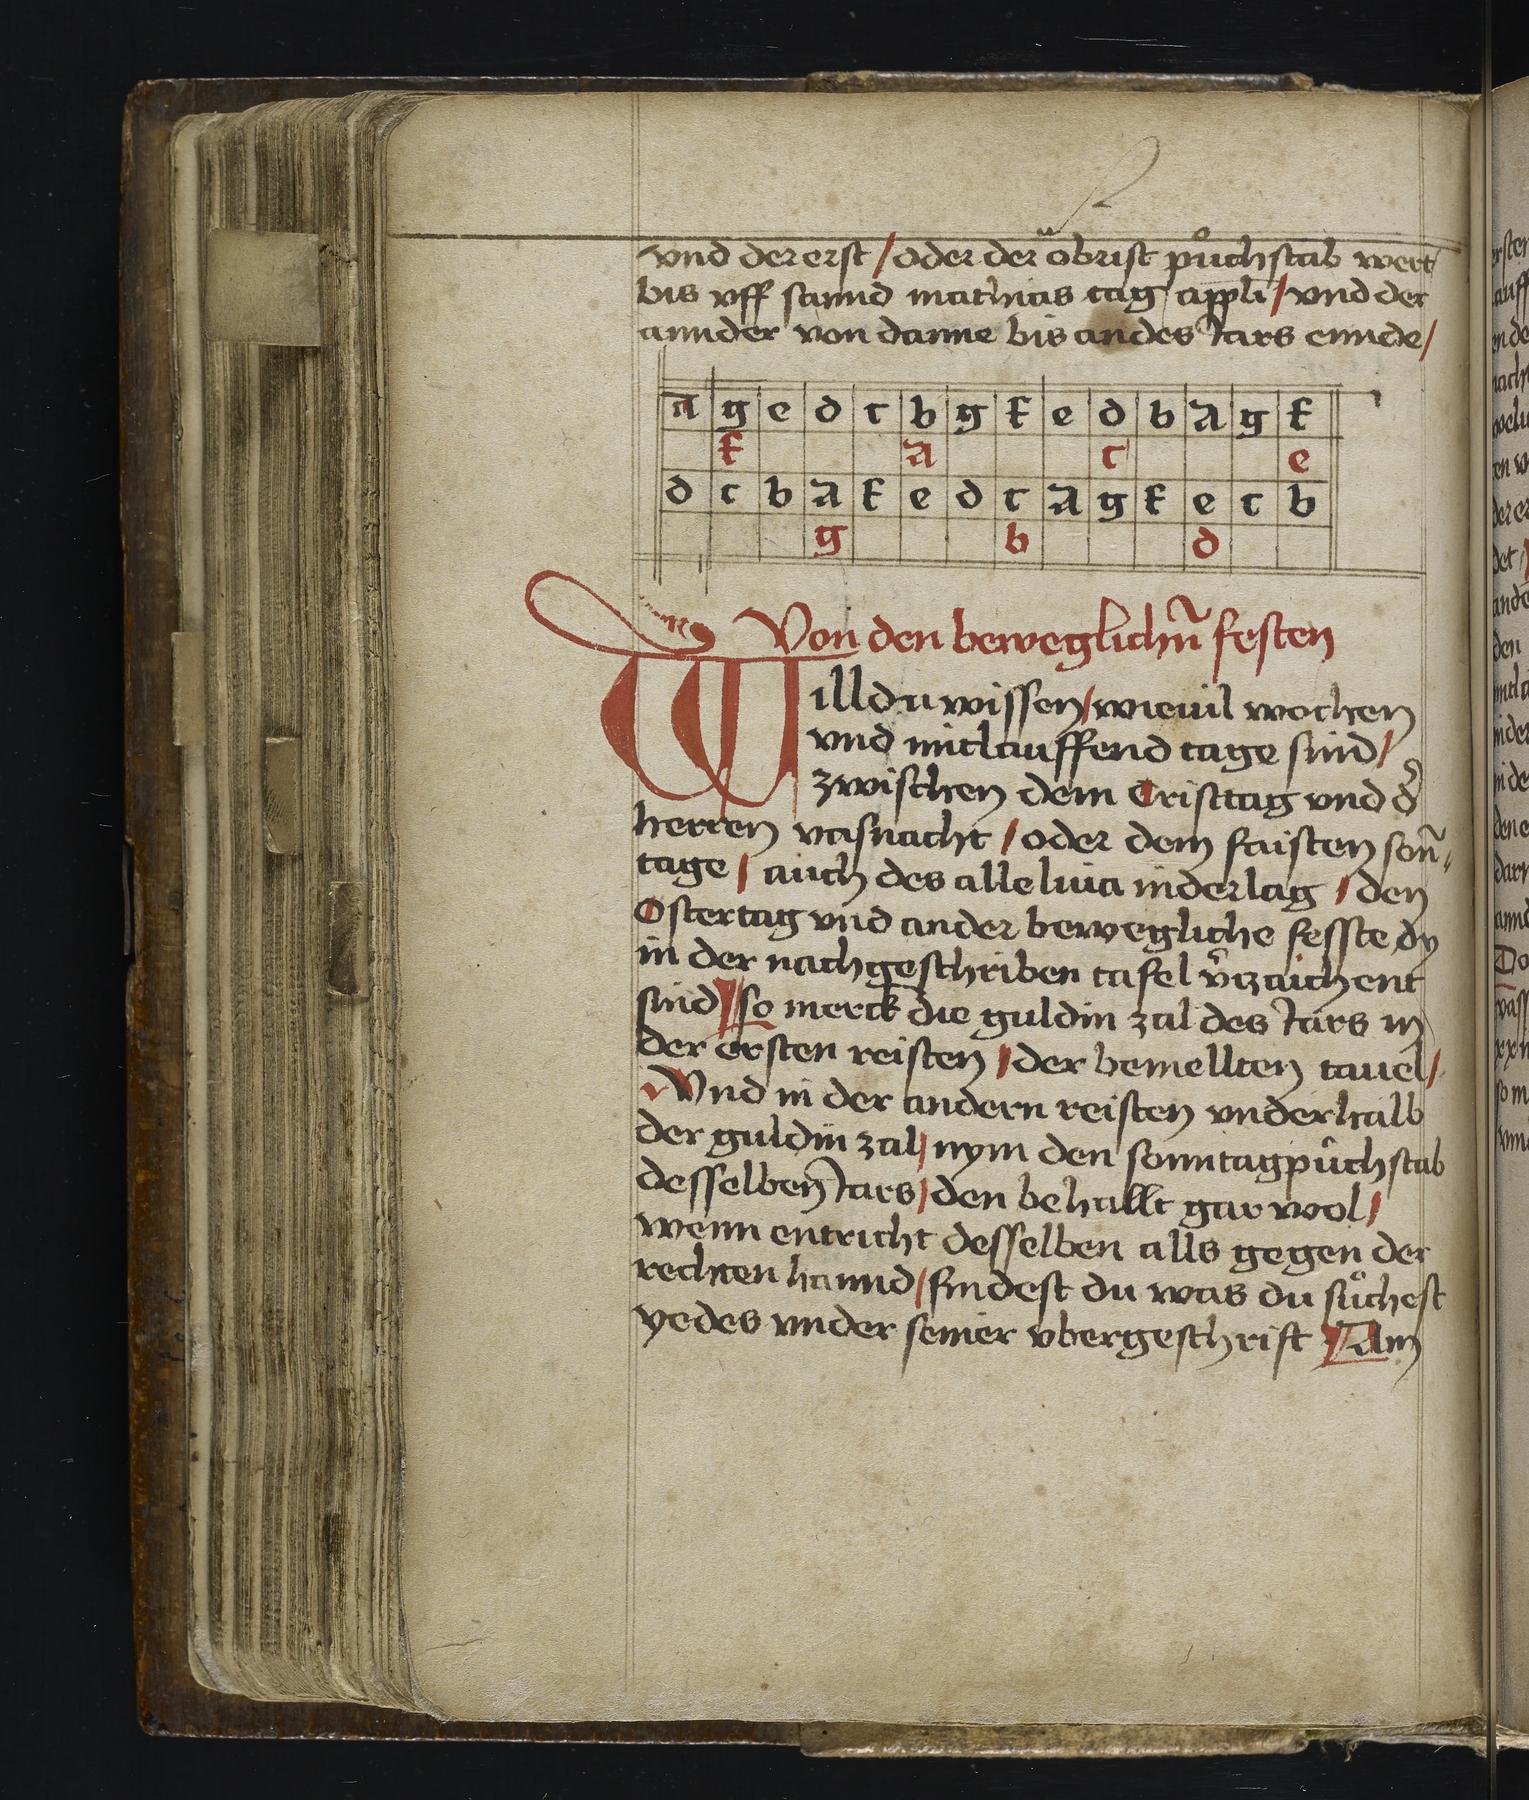 vnd der erst / oder der öbrist půchstab wert
bis vff sannd mathias tag appli / vnd der
annder von danne bis an des Jars ennde /
a g e d c b g f e d b a g f
f a c e
d c b a f e d c a g f e c b
g b d
Von den beweglichñ festen
Will du wissen / wieuil wochen
vnd mitlauffend tage sind /
zwischen dem Cristtag vnd d̄
herren vasnacht / oder dem faisten soñ-
tage / auch des alleluia niderlag / den
Ostertag vnd ander bewegliche fesste dy
in der nachgeschriben tafel v̄zaichent
sind so merck die guldin zal des Jars in
der ersten reisten / der bemellten tauel /
Vnd in der andern reisten vnderhalb
der guldin zal / nym den sonntagpůchstab
desselben Jars / den behallt gar wol /
wenn entricht desselben alls gegen der
rechten hannd / findest du was du sůchest
yedes vnder seiner vbergeschrift Am